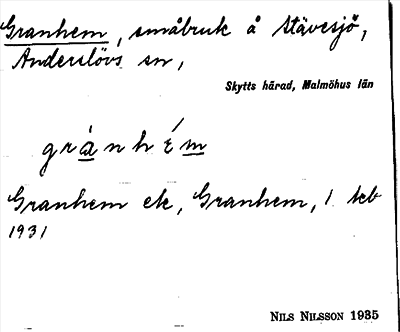 Granhem, småbruk å Stävesjö,
Anderslövs sn,
Skytts härad, Malmöhus län
grànhém
Granhem ek, Granhem, 1 tcb
1931
NILS NILSSON 1935